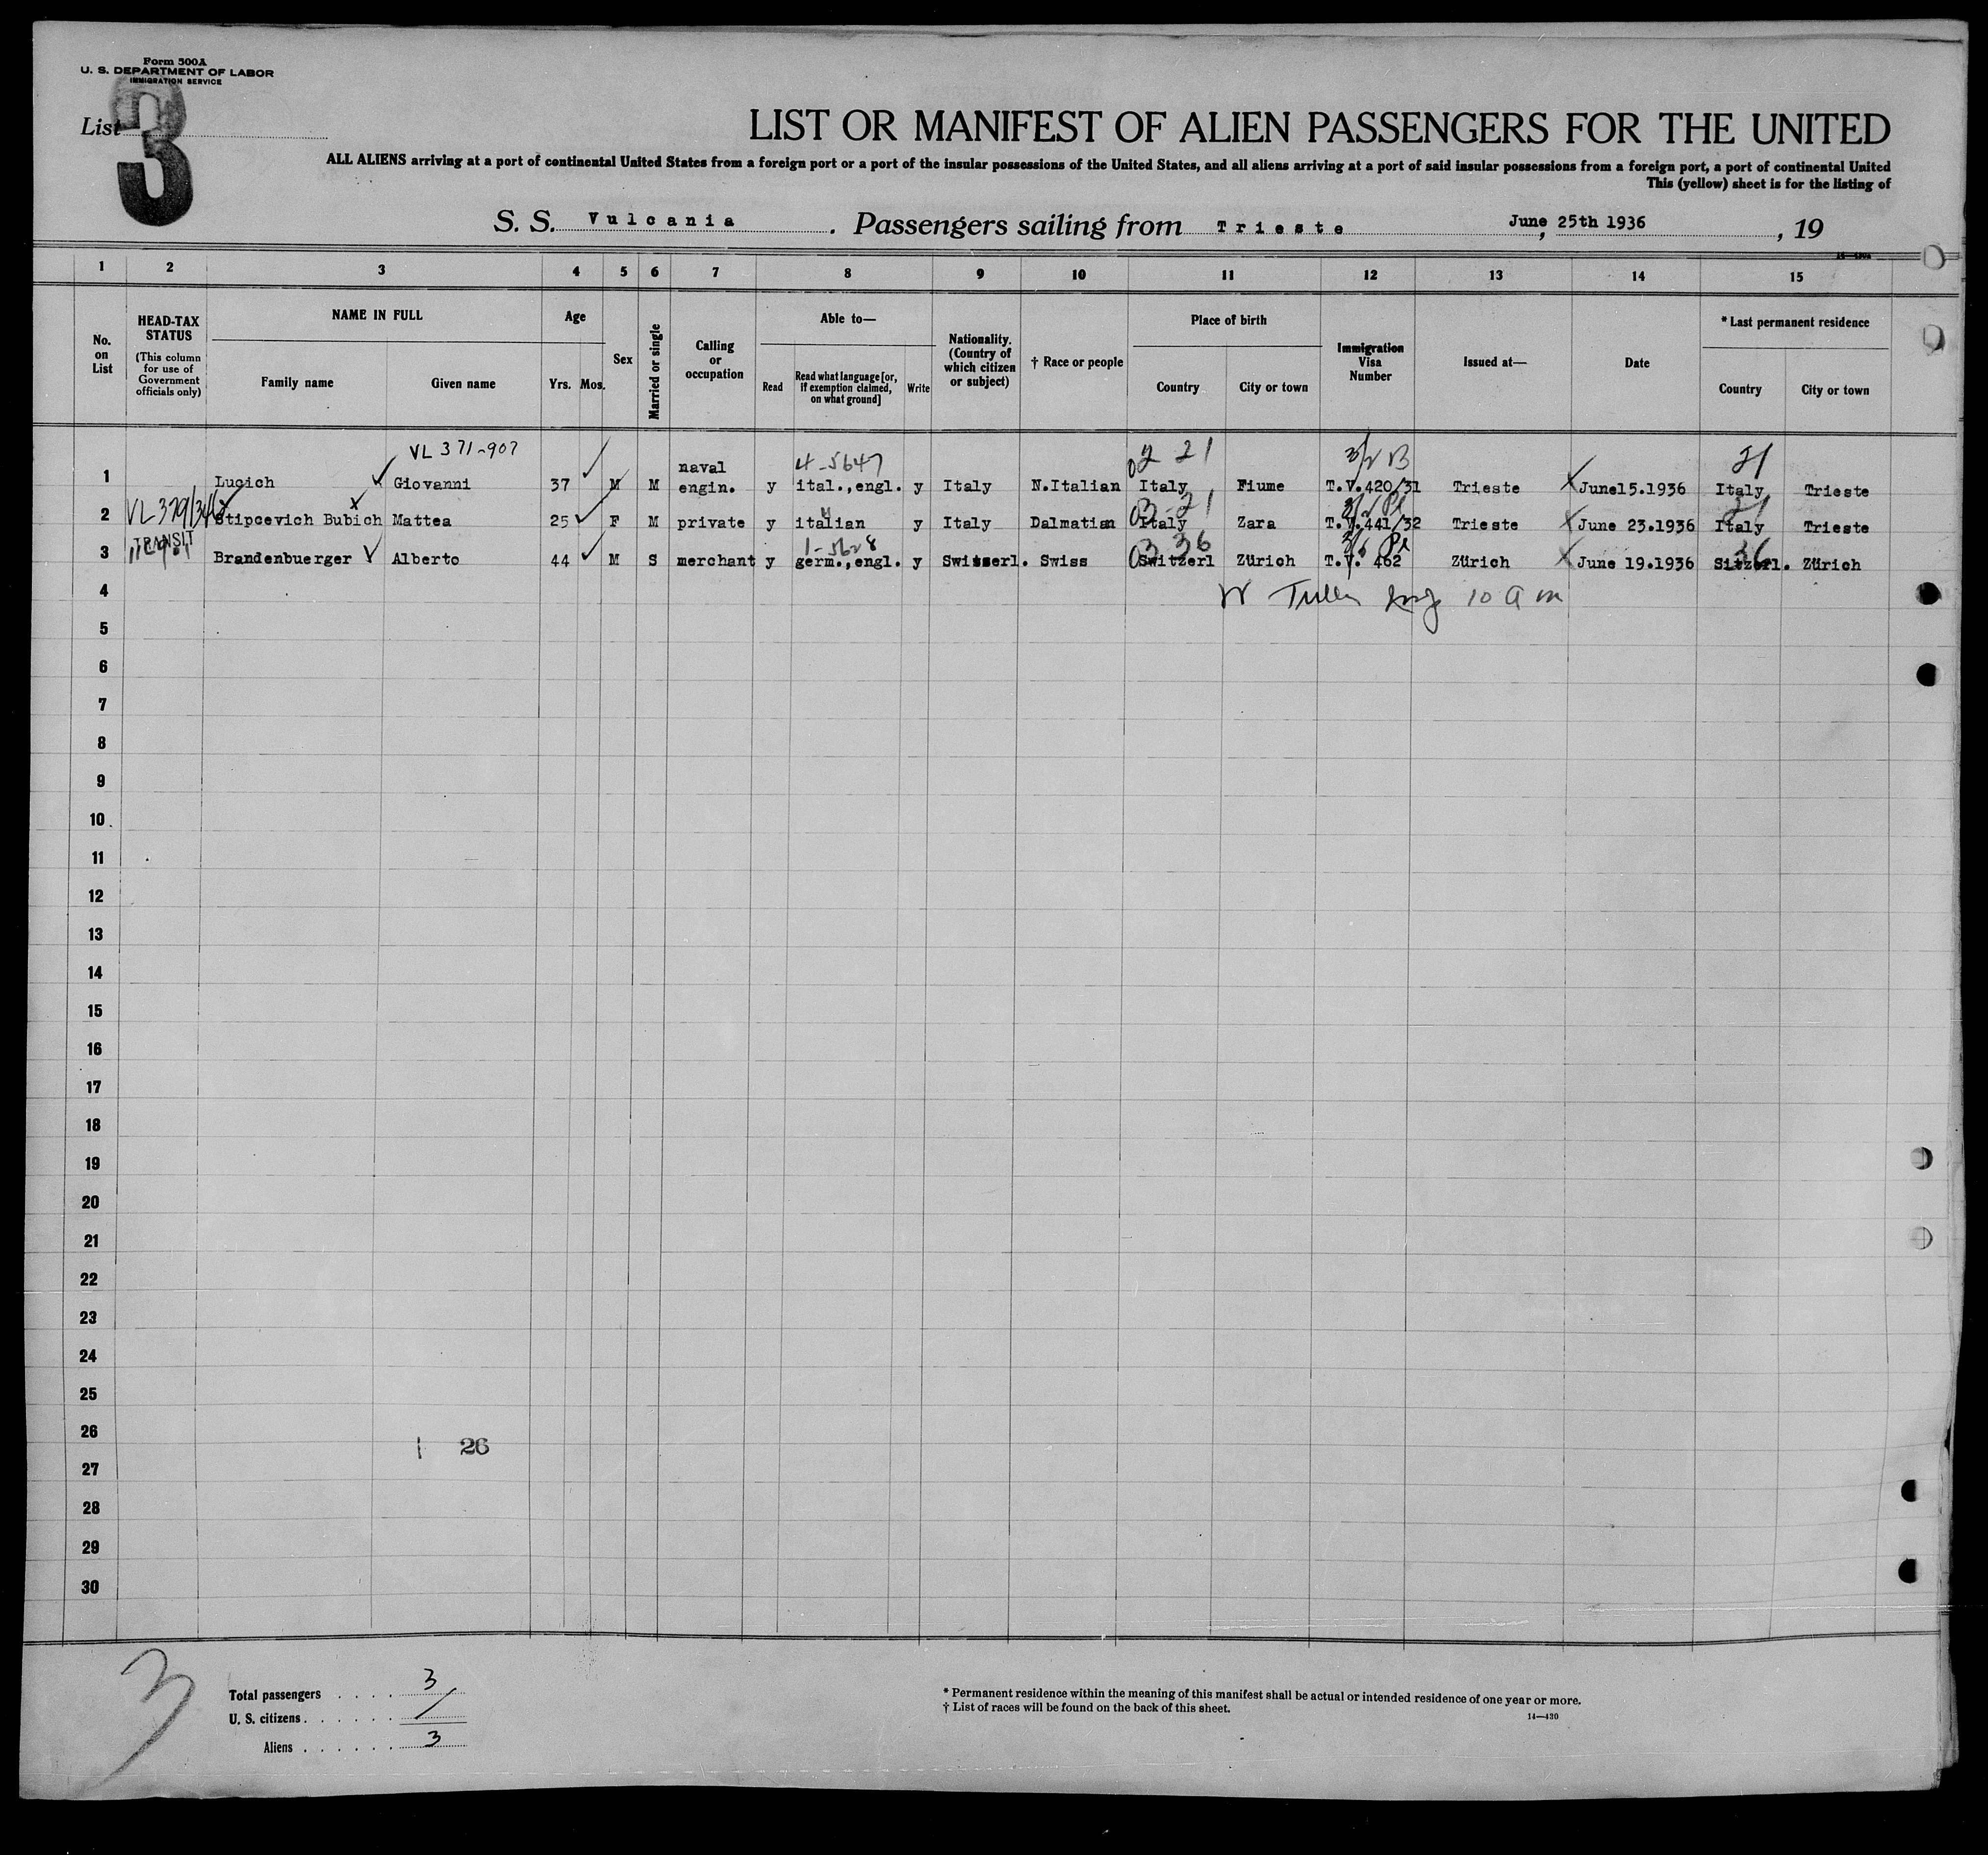 Form 500A
U. S. DEPARTMENT OF LABOR
IMMIGRATION SERVICE
List 3
LIST OR MANIFEST OF ALIEN PASSENGERS FOR THE UNITED
ALL ALIENS arriving at a port of continental United States from a foreign port or a port of the insular possessions of the United States, and all aliens arriving at a port of said insular possessions from a foreign port, a port of continental United
This (yellow) sheet is for the listing of
S. S. Vulcania . Passengers sailing from Trieste June, 25th 1936 , 19
1 2 3 4 5 6 7 8 9 10 11 12 13 14 15
No. on List
HEAD-TAX STATUS (This column for use of Government officials only)
NAME IN FULL
Family name Given name
Age
Yrs. Mos.
Sex
Married or single
Calling or occupation
Able to—
Read
Read what language [or, if exemption claimed, on what ground]
Write
Nationality. (Country of which citizen or subject)
† Race or people
Place of birth
Country City or town
Immigration Visa Number
Issued at—
Date
* Last permanent residence
Country City or town
VL 371-907
naval 4-5647 2 21 3/2 B 21
1 Lucich Giovanni 37 M M engin. y ital.,engl. y Italy N.Italian Italy Fiume T.V.420/31 Trieste June15.1936 Italy Trieste
2 Stipcevich Bubich Mattea 25 F M private y italian y Italy Dalmatian Italy Zara T.V.441/32 Trieste June 23.1936 Italy Trieste
TRANSIT
3 Brandenbuerger Alberto 44 M S merchant y germ.,engl. y Swisserl. Swiss Switzerl Zürich T.V. 462 Zürich June 19.1936 Sitzerl. Zürich
4 10 a m
5
6
7
8
9
10
11
12
13
14
15
16
17
18
19
20
21
22
23
24
25
26
26
27
28
29
30
3
Total passengers . . . . 3
U. S. citizens . . . . . . /
Aliens . . . . . . 3
* Permanent residence within the meaning of this manifest shall be actual or intended residence of one year or more.
† List of races will be found on the back of this sheet.
14—430